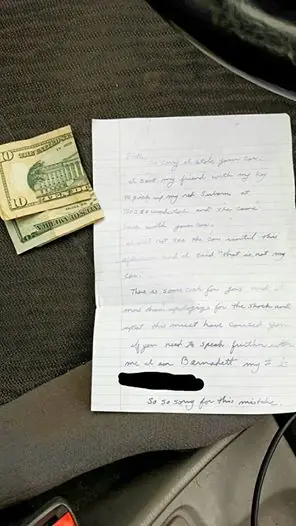 THE UNITED S
10
Hello, So sorry I stole your car.
I sent my friend with my key
to pick up my red Subaru at
and she came
back with your car.
I did not see the car until this
and I said "that is not my
car."
There is some cash for gas and I
more than apologize for the shock and
upset this must have caused you.
If you need to speak further with
me I am Bernadett my # is
So so sorry for this mistake.